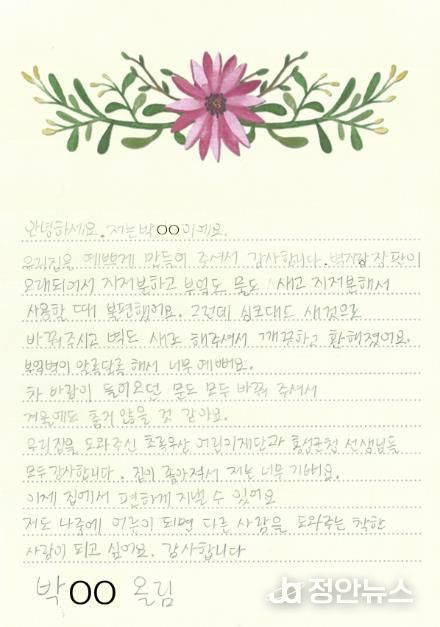 안녕하세요. 저는 박OO이예요.
우리집을 예쁘게 만들어 주셔서 감사합니다. 벽지랑 장판이
오래되어서 지저분하고 부엌도 물도 새고 지저분해서
사용할 때 불편했어요. 그런데 싱크대도 새것으로
바꿔주시고 벽도 새로 해주셔서 깨끗하고 환해졌어요.
부엌벽이 알록달록 해서 너무 예뻐요.
차 바람이 들어오던 문도 모두 바꿔 주셔서
겨울에도 춥지 않을 것 같아요.
우리집을 도와주신 초록우산 어린이재단과 홍성군청 선생님들
모두 감사합니다. 집이 좋아져서 저는 너무 기뻐요.
이제 집에서 편하게 지낼 수 있어요
저도 나중에 어른이 되면 다른 사람을 도와주는 착한
사람이 되고 싶어요. 감사합니다
박OO 올림
정안뉴스